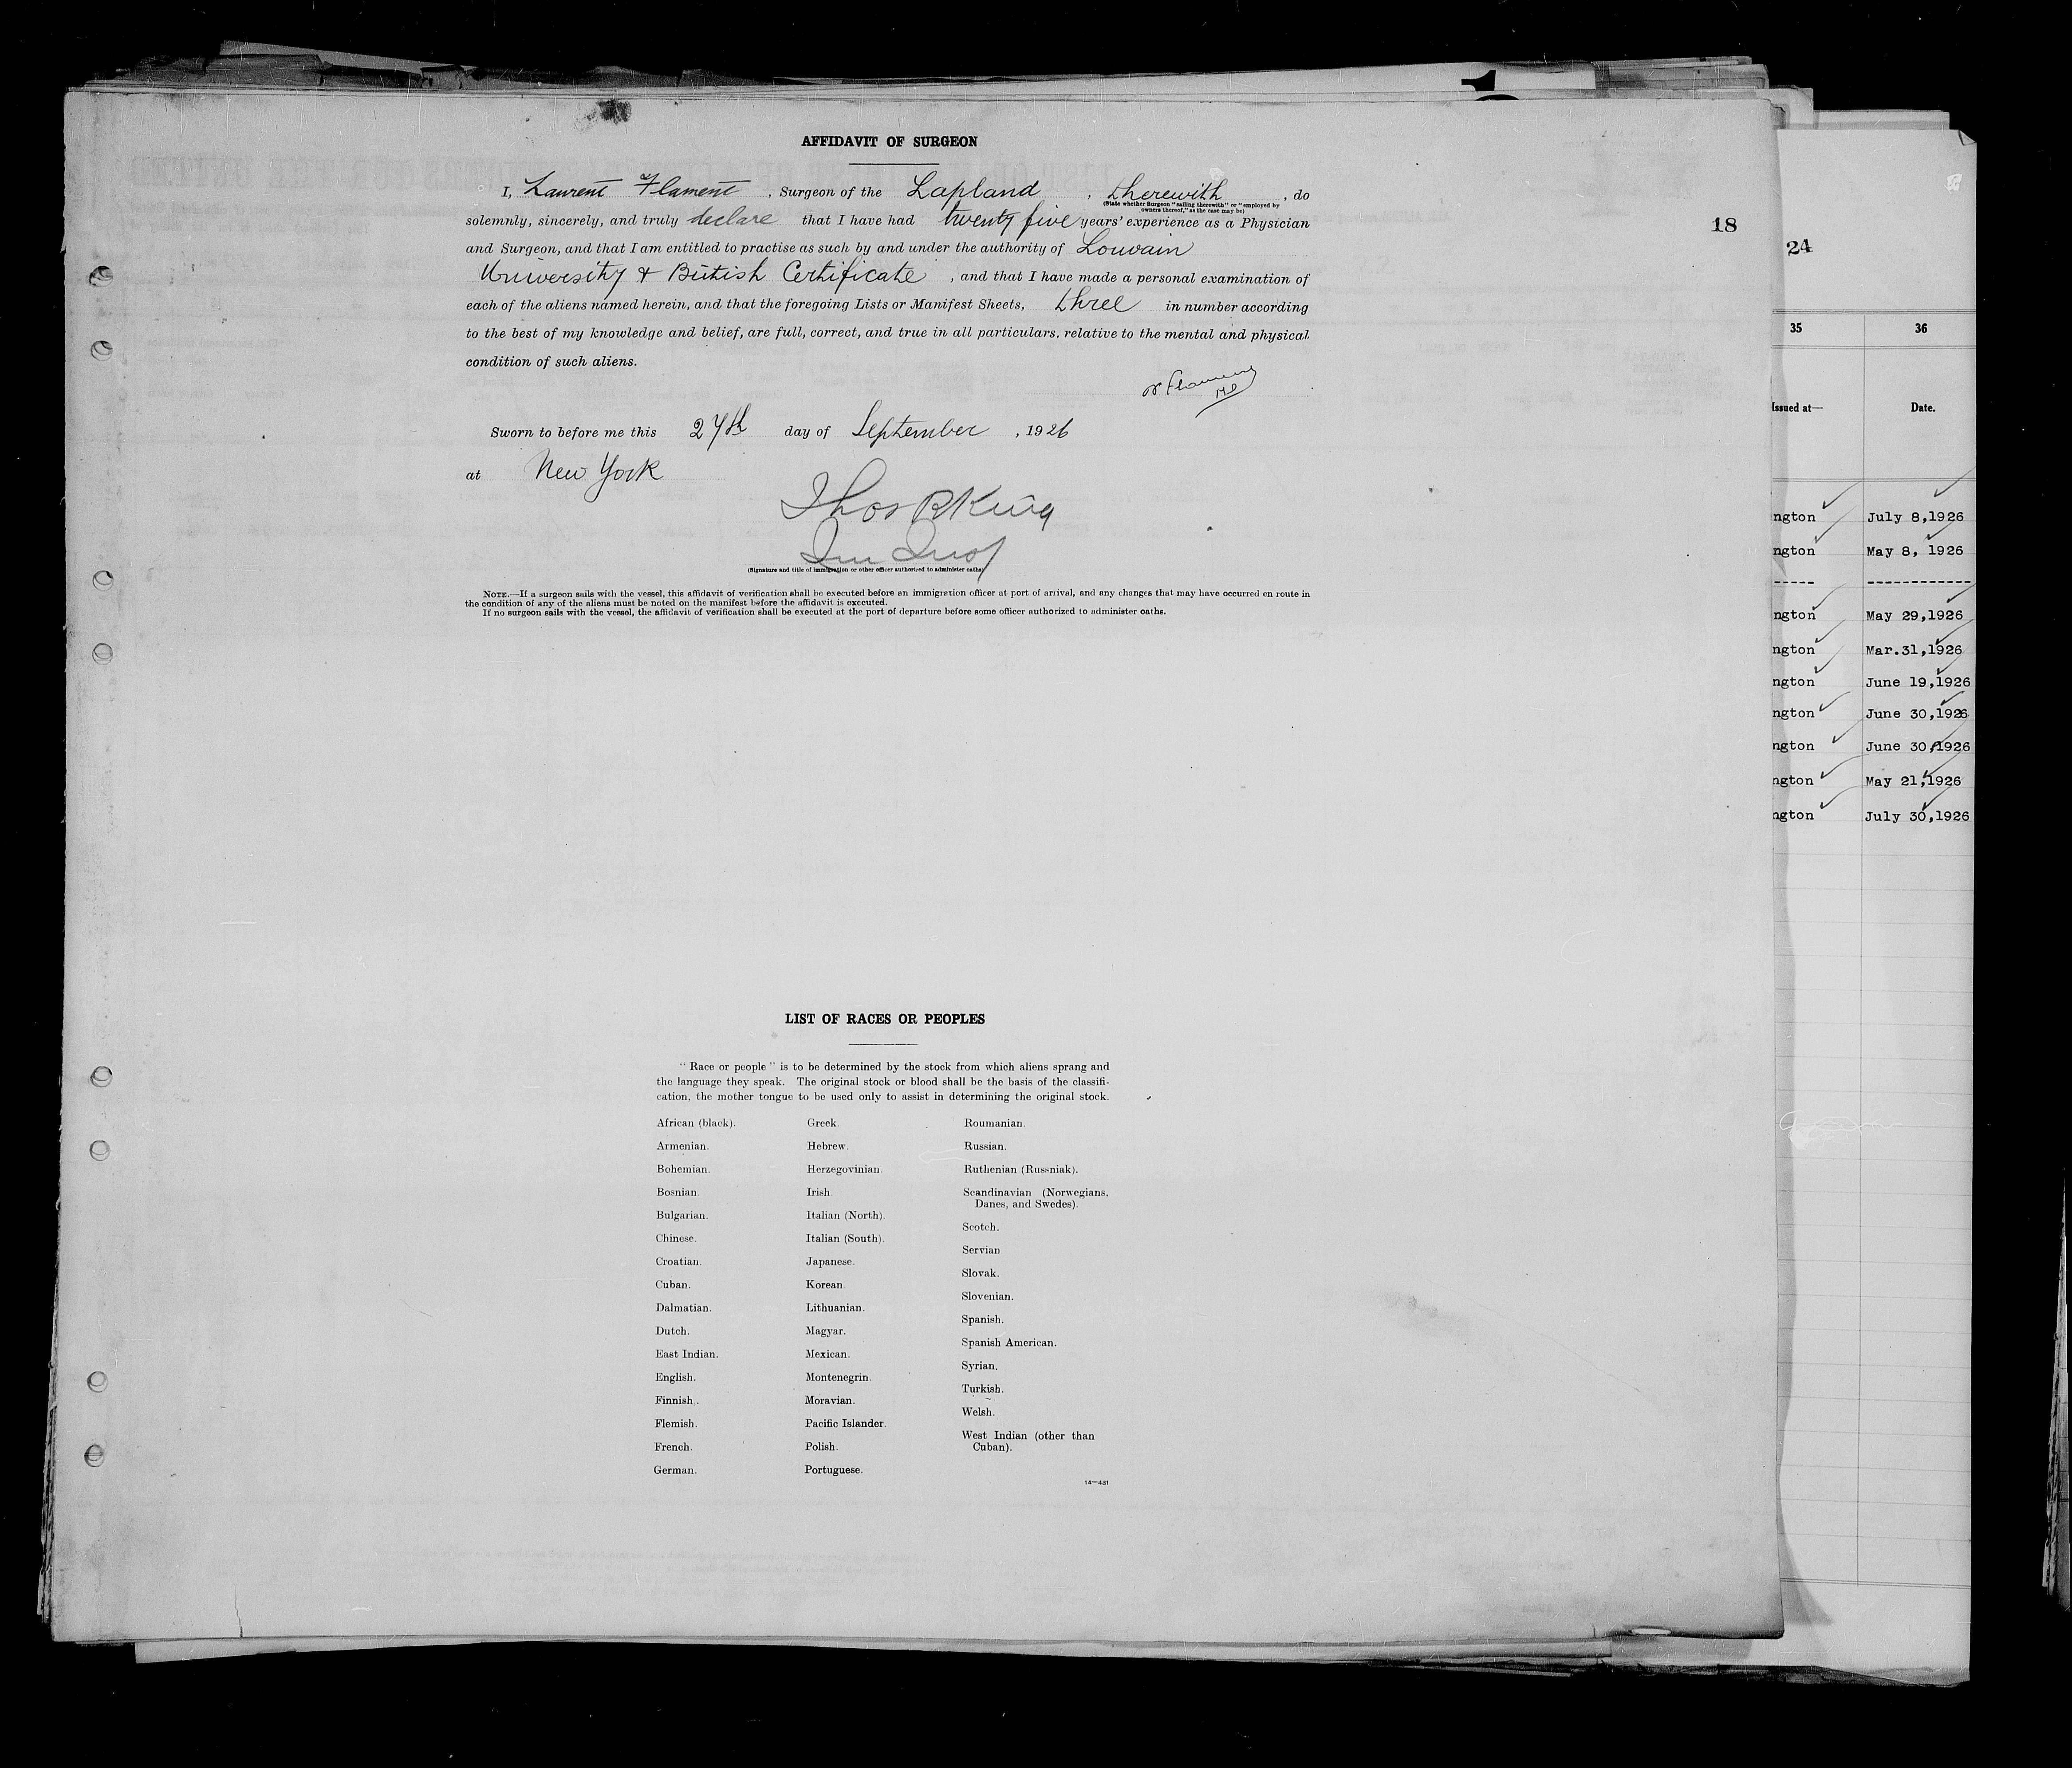 AFFIDAVIT OF SURGEON
I, Laurent Flament, Surgeon of the Lapland, therewith, do
(State whether Surgeon "sailing therewith" or "employed by
owners thereof," as the case may be)
solemnly, sincerely, and truly declare that I have had twenty five years' experience as a Physician
and Surgeon, and that I am entitled to practise as such by and under the authority of Louvain
University & British Certificate, and that I have made a personal examination of
each of the aliens named herein, and that the foregoing Lists or Manifest Sheets, three in number according
to the best of my knowledge and belief, are full, correct, and true in all particulars, relative to the mental and physical
condition of such aliens.
Sworn to before me this 27th day of September, 1926
at New York
Thos R King
(Signature and title of immigration or other officer authorized to administer oaths)
NOTE.—If a surgeon sails with the vessel, this affidavit of verification shall be executed before an immigration officer at port of arrival, and any changes that may have occurred en route in
the condition of any of the aliens must be noted on the manifest before the affidavit is executed.
If no surgeon sails with the vessel, the affidavit of verification shall be executed at the port of departure before some officer authorized to administer oaths.
18
LIST OF RACES OR PEOPLES
"Race or people" is to be determined by the stock from which aliens sprang and
the language they speak. The original stock or blood shall be the basis of the classifi-
cation, the mother tongue to be used only to assist in determining the original stock.
African (black).
Armenian.
Bohemian.
Bosnian.
Bulgarian.
Chinese.
Croatian.
Cuban.
Dalmatian.
Dutch.
East Indian.
English.
Finnish.
Flemish.
French.
German.
Greek.
Hebrew.
Herzegovinian.
Irish.
Italian (North).
Italian (South).
Japanese.
Korean.
Lithuanian.
Magyar.
Mexican.
Montenegrin.
Moravian.
Pacific Islander.
Polish.
Portuguese.
Roumanian.
Russian.
Ruthenian (Russniak).
Scandinavian (Norwegians,
Danes, and Swedes).
Scotch.
Servian
Slovak.
Slovenian.
Spanish.
Spanish American.
Syrian.
Turkish.
Welsh.
West Indian (other than
Cuban).
14—431
24
35 36
Issued at— Date.
ngton July 8,1926
ngton May 8, 1926
----- ------------
ngton May 29,1926
ngton Mar.31,1926
ngton June 19,1926
ngton June 30,1926
ngton June 30,1926
ngton May 21,1926
ngton July 30,1926